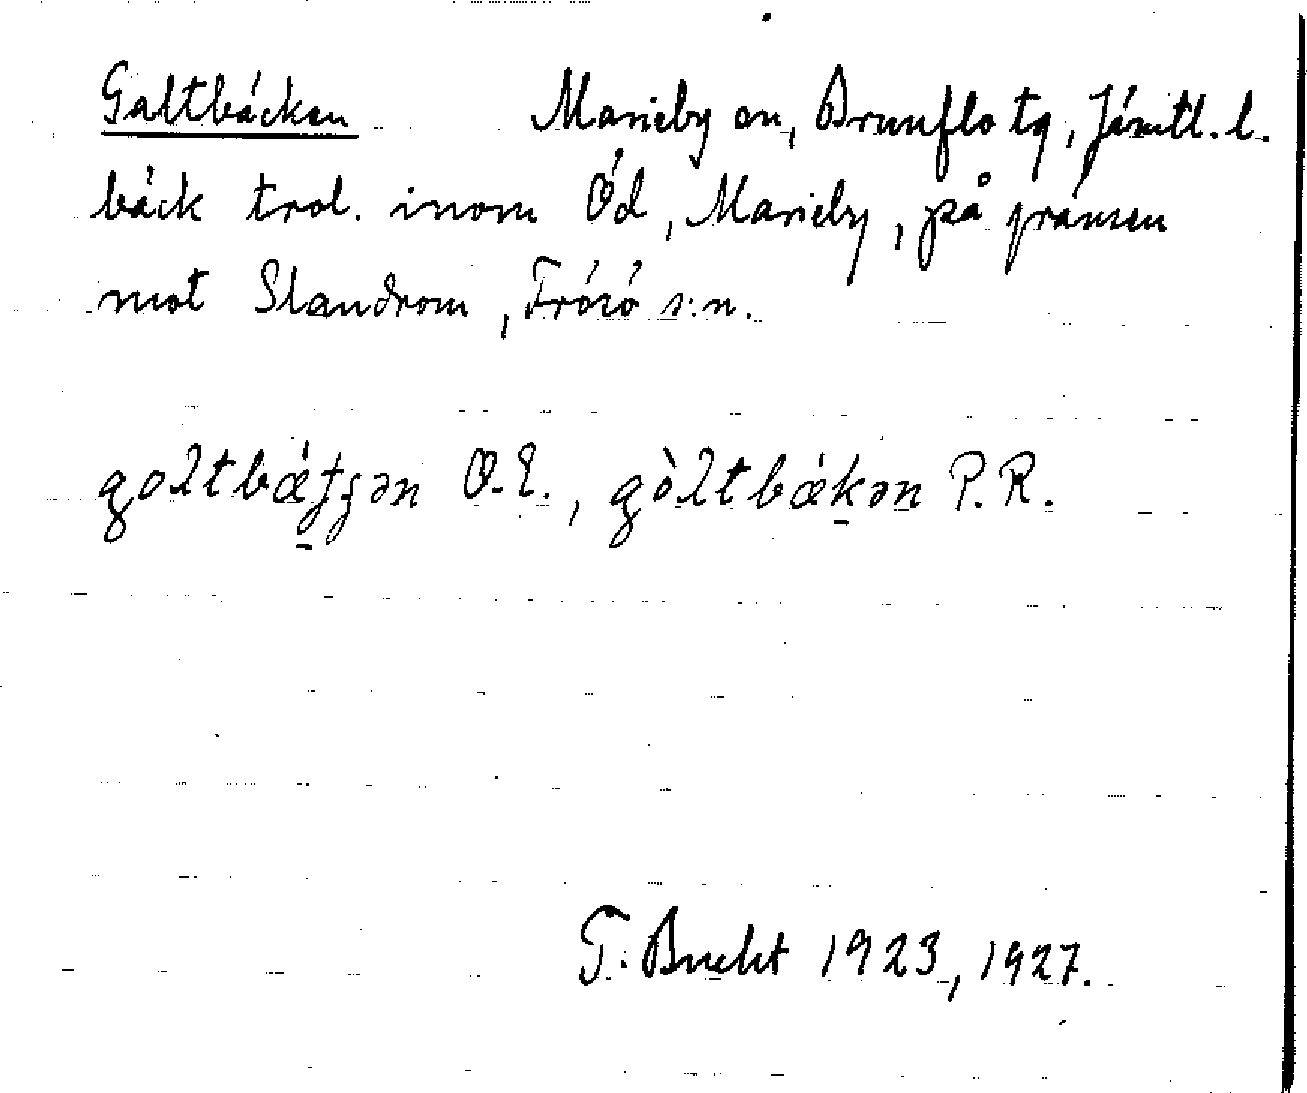 Galtbäcken Marieby sn, Brunflo tg, Jämtl. l.
bäck trol. inom Öd, Marieby, på gränsen
mot Slandrom, Frösö s:n.
goltbǽʈʂən O.E., gòltbǽkən P.R.
T. Bucht 1923, 1927.